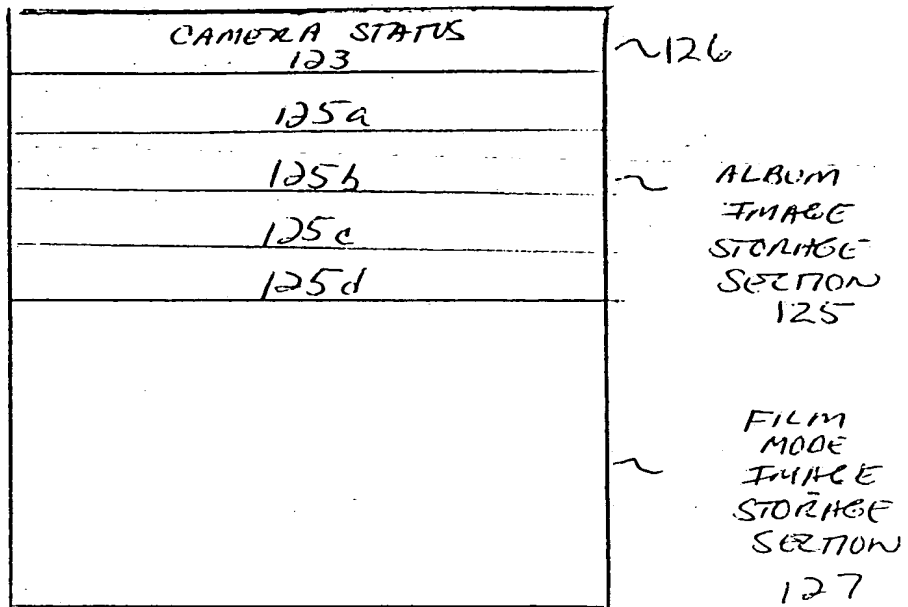 CAMERA STATUS
123
~126
125a
125b
125c
125d
~ ALBUM
IMAGE
STORAGE
SECTION
125
~ FILM
MODE
IMAGE
STORAGE
SECTION
127